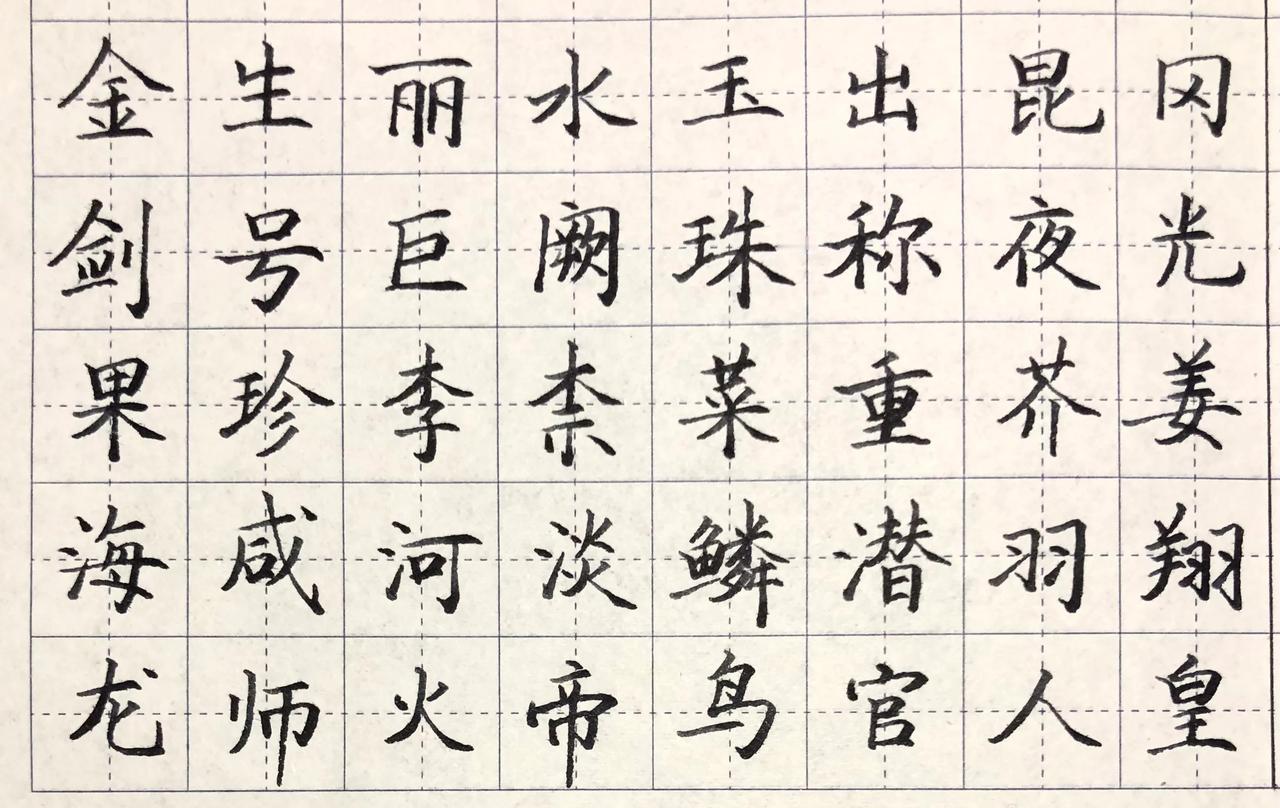 金生丽水玉出昆冈
剑号巨阙珠称夜光
果珍李柰菜重芥姜
海咸河淡鳞潜羽翔
龙师火帝鸟官人皇